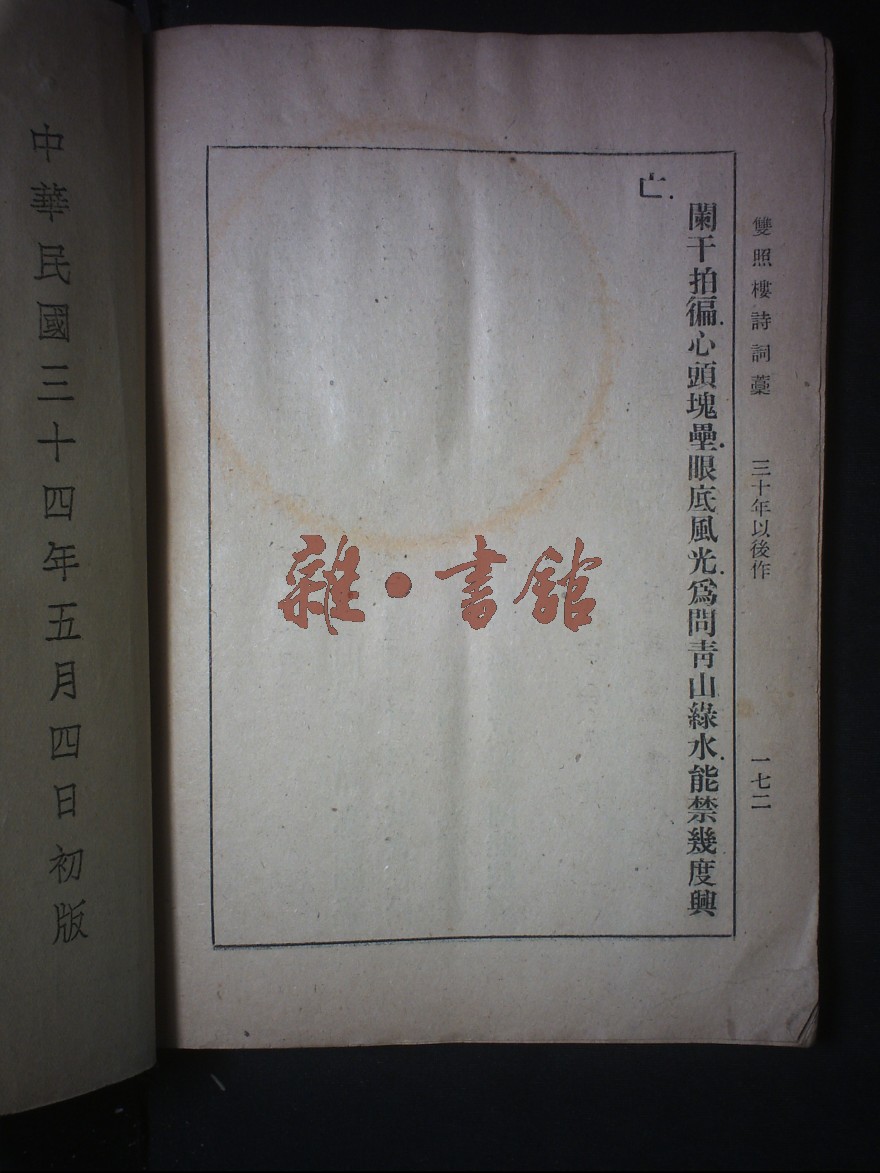 雙照樓詩詞藁 三十年以後作 一七二
闌干拍徧.心頭塊壘.眼底風光.爲問靑山綠水.能禁幾度興
亡.
雜·書館
中華民國三十四年五月四日初版